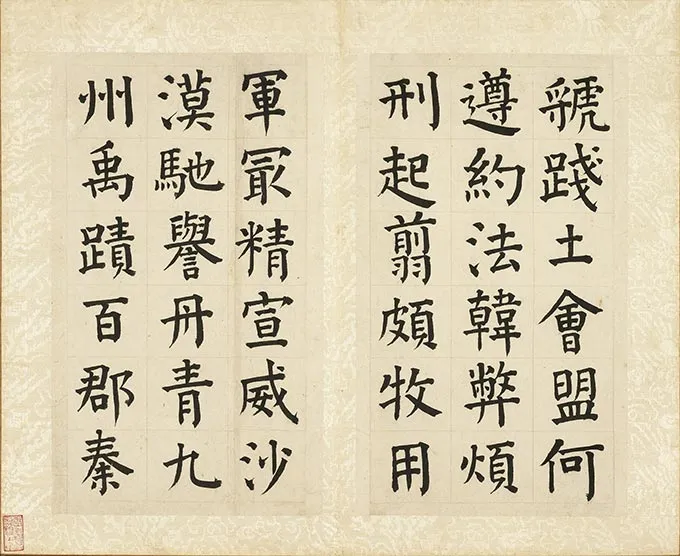 虢踐土會盟何
遵約法韓弊煩
刑起翦頗牧用
軍冣精宣威沙
漠馳譽丹青九
州禹蹟百郡秦